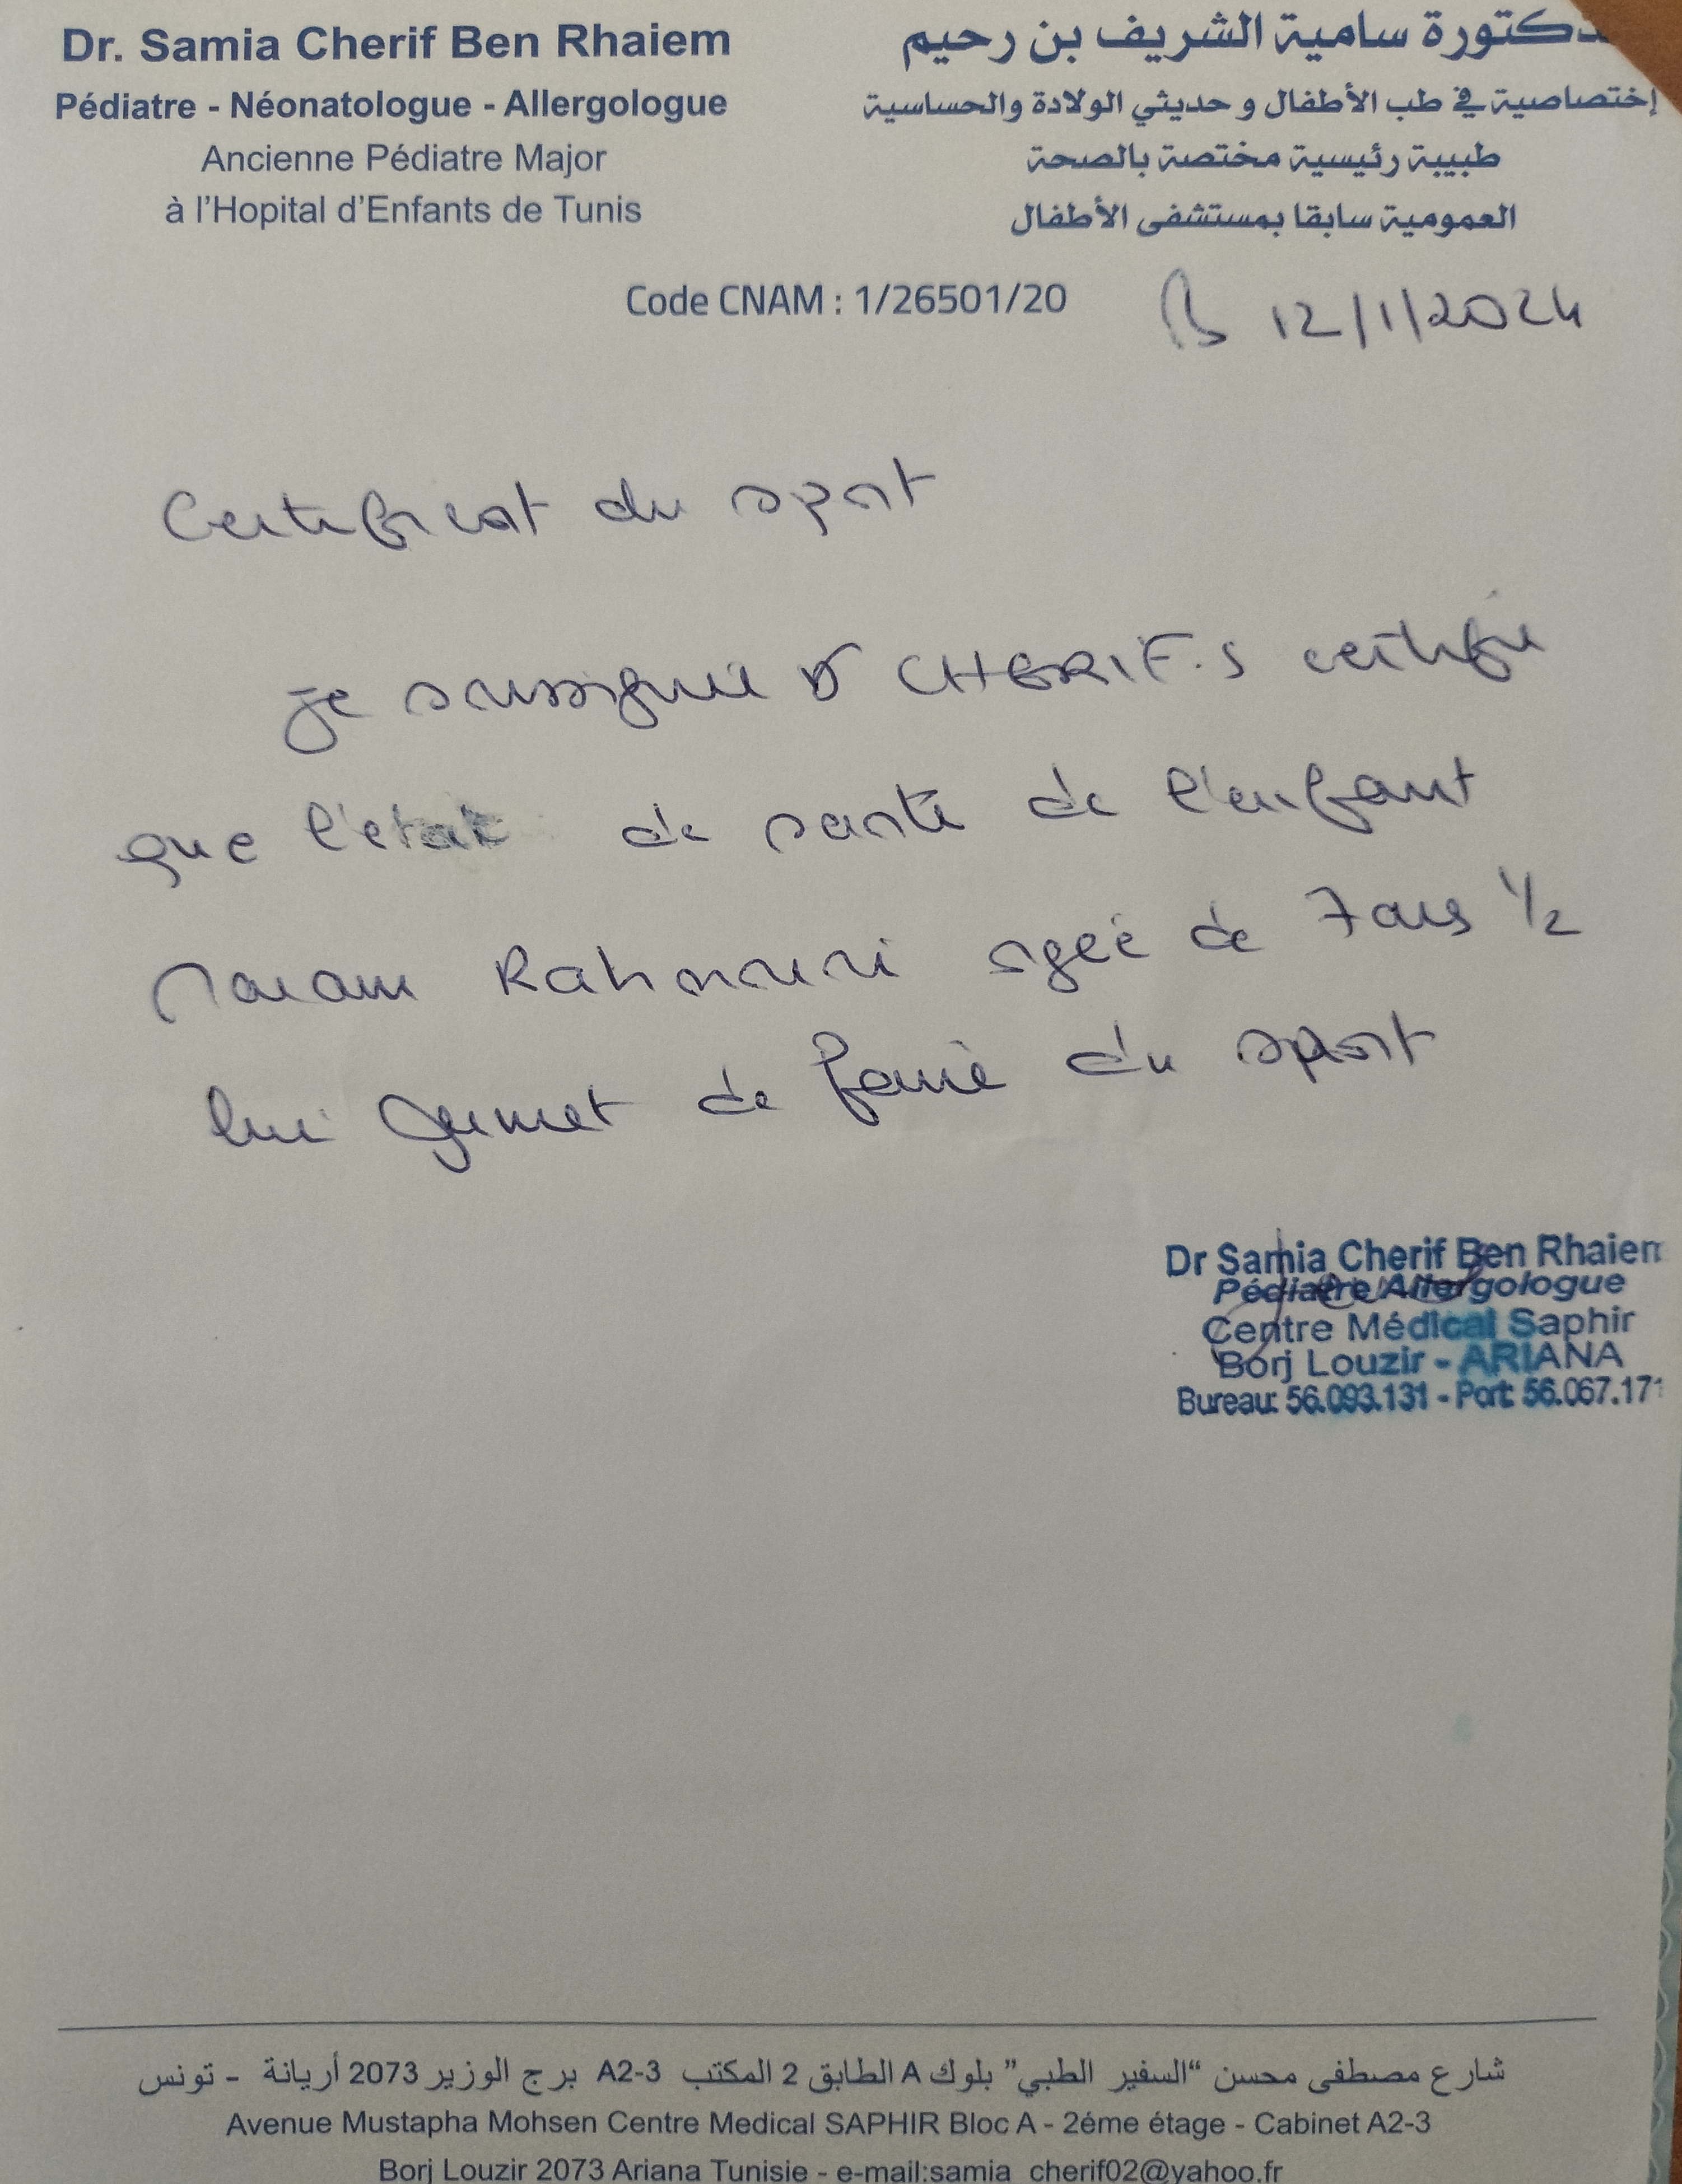 Dr. Samia Cherif Ben Rhaiem
Pédiatre - Néonatologue - Allergologue
Ancienne Pédiatre Major
à l'Hopital d'Enfants de Tunis
دكتورة سامية الشريف بن رحيم
إختصاصية في طب الأطفال و حديثي الولادة والحساسية
طبيبة رئيسية مختصة بالصحة
العمومية سابقا بمستشفى الأطفال
Code CNAM : 1/26501/20
12/1/2024
Certificat du sport
je soussignée Dr CHERIF.S certifie
que l'etat de santé de l'enfant
Rahmouni agée de 7 ans 1/2
lui permet de faire du sport
Dr Samia Cherif Ben Rhaiem
Pédiatre Allergologue
Centre Médical Saphir
Borj Louzir - ARIANA
Bureau: 56.093.131 - Port: 56.067.171
شارع مصطفى محسن “السفير الطبي” بلوك A الطابق 2 المكتب A2-3 برج الوزير 2073 أريانة - تونس
Avenue Mustapha Mohsen Centre Medical SAPHIR Bloc A - 2éme étage - Cabinet A2-3
Borj Louzir 2073 Ariana Tunisie - e-mail:samia_cherif02@yahoo.fr